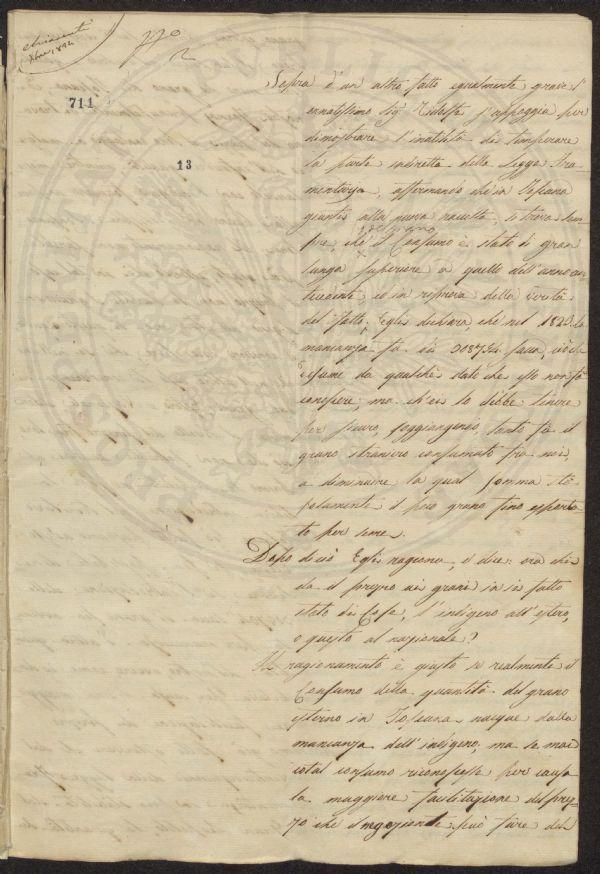 711
13
Sopra d'un altro fatto egualmente grave l'
ornatissimo Sig. Ridolfi s'appoggia per
dimostrare l'inutilità di temperare
la parte indiretta della Legge Fru-
mentaria, affermando che in Toscana
giunti alla nuova raccolta, si trova sem-
pre, che il Consumo è stato di gran
lunga superiore a quello dell'anno an-
tecedente ed in riprova della verità
del fatto, Egli dichiara, che nel 1823 la
mancanza fu di 308734 sacca, ciò che
desume da qualche dato che esso non fa
conoscere, ma ch'ei lo debbe tenere
per sicuro, soggiungendo, tanto fu il
grano straniero consumato fra noi,
a diminuire la qual somma
solamente il poco grano fino esporta-
to per seme.
Dopo di ciò Egli ragiona, e dice: ora chi
dà il prezzo ai grani in sì fatto
stato di Cose, l'indigeno all'estero,
o questo al nazionale?
Il ragionamento è giusto se realmente il
Consumo della quantità del grano
esterno in Toscana nacque dalla
mancanza dell'indigeno, ma se mai
cotal consumo riconoscesse per causa
la maggiore facilitazione del prez-
zo che il negoziante può fare del